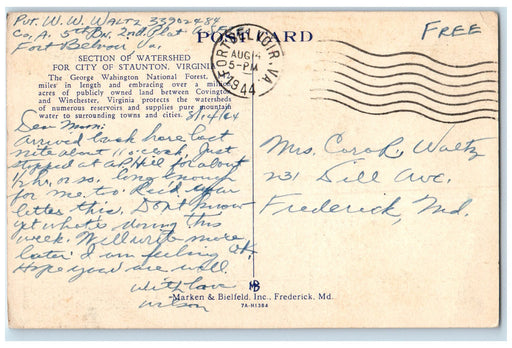 Pvt. W. W. Waltz 33902484
Co. A. 5th Bn. 2nd. Plat.
Fort Belvoir, Va.
POST CARD
FREE
FORT BELVOIR, VA.
AUG 14
5-PM
1944
SECTION OF WATERSHED
FOR CITY OF STAUNTON, VIRGINIA
The George Wahington National Forest,
miles in length and embracing over a million
acres of publicly owned land between Covington
and Winchester, Virginia protects the watersheds
of numerous reservoirs and supplies pure mountain
water to surrounding towns and cities.
8/14/44
Dear Mom:
Arrived back here last
nite about 11 o'clock. Just
stopped at A.P. Hill for about
1/2 hr. or so. long enough
for me to your
letter this. Don't know
yet what's doing this
week. Will write more
later I am feeling OK.
Hope you are well.
With love
Wilson
Mrs. Cora R. Waltz
231 Dill Ave.
Frederick, Md.
MB
Marken & Bielfeld, Inc., Frederick, Md.
7A-H1384